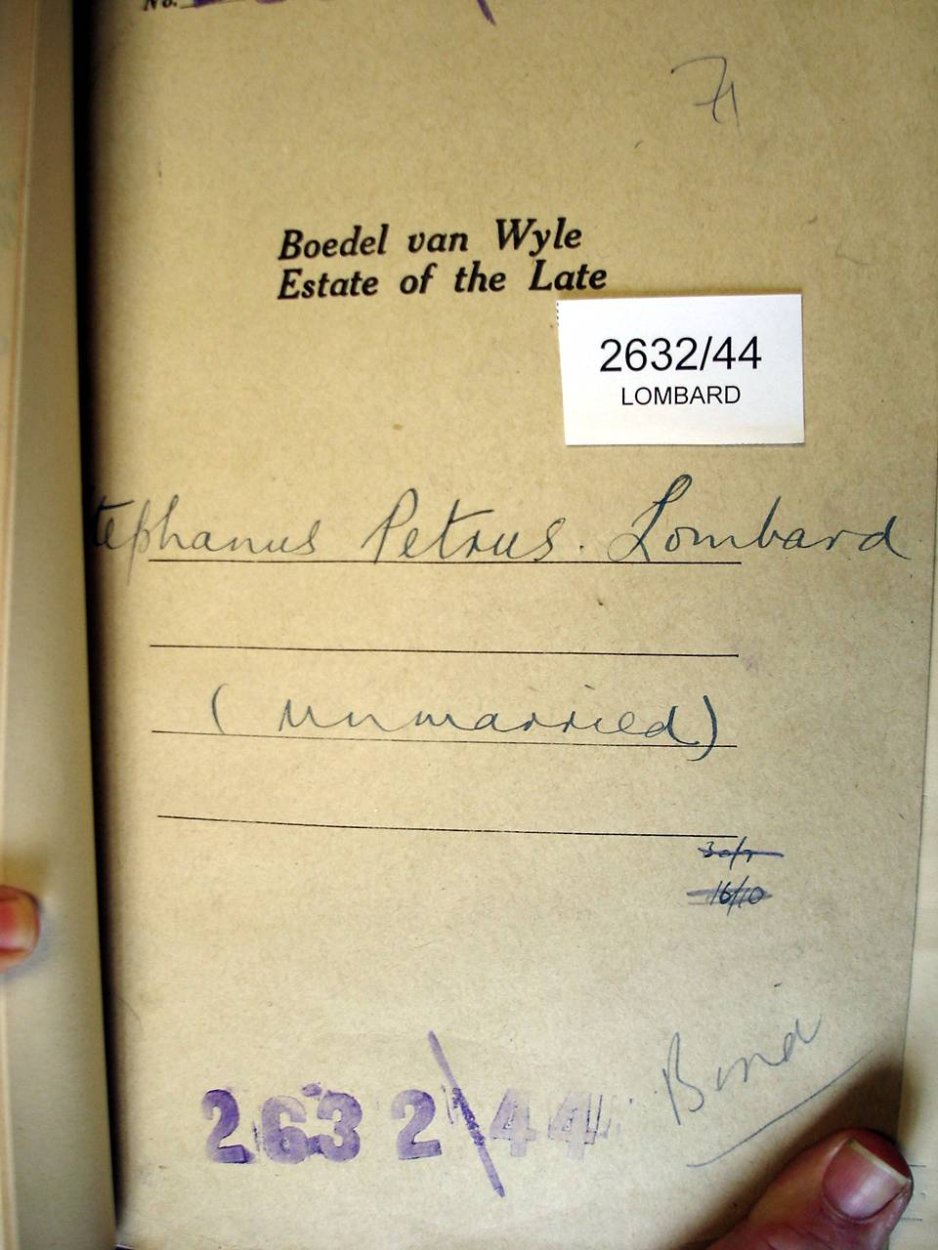 No.
71
Boedel van Wyle
Estate of the Late
2632/44
LOMBARD
Stephanus Petrus. Lombard
(Unmarried)
16/10
2632\44
Bond